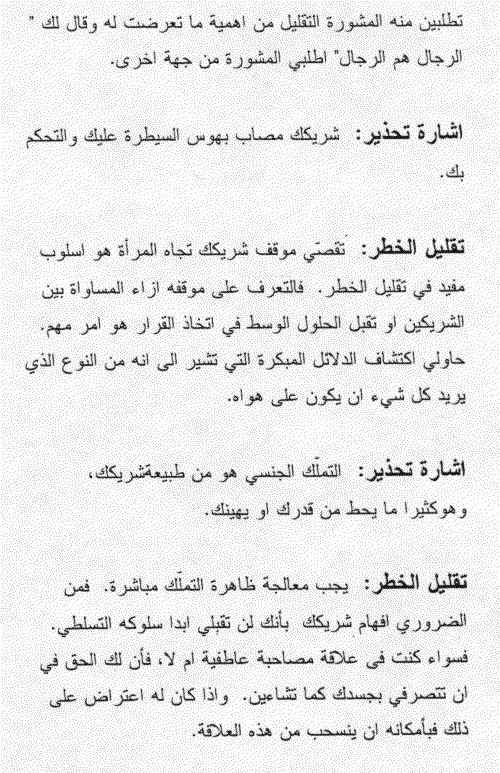 تطلبين منه المشورة التقليل من اهمية ما تعرضت له وقال لك "
الرجال هم الرجال" اطلبي المشورة من جهة اخرى.
اشارة تحذير: شريكك مصاب بهوس السيطرة عليك والتحكم
بك.
تقليل الخطر: تَقصّي موقف شريكك تجاه المرأة هو اسلوب
مفيد في تقليل الخطر. فالتعرف على موقفه ازاء المساواة بين
الشريكين او تقبل الحلول الوسط في اتخاذ القرار هو امر مهم.
حاولي اكتشاف الدلائل المبكرة التي تشير الى انه من النوع الذي
يريد كل شيء ان يكون على هواه.
اشارة تحذير: التملّك الجنسي هو من طبيعةشريكك،
وهوكثيرا ما يحط من قدرك او يهينك.
تقليل الخطر: يجب معالجة ظاهرة التملّك مباشرة. فمن
الضروري افهام شريكك بأنك لن تقبلي ابدا سلوكه التسلطي.
فسواء كنت فى علاقة مصاحبة عاطفية ام لا، فأن لك الحق في
ان تتصرفي بجسدك كما تشاءين. واذا كان له اعتراض على
ذلك فبأمكانه ان ينسحب من هذه العلاقة.